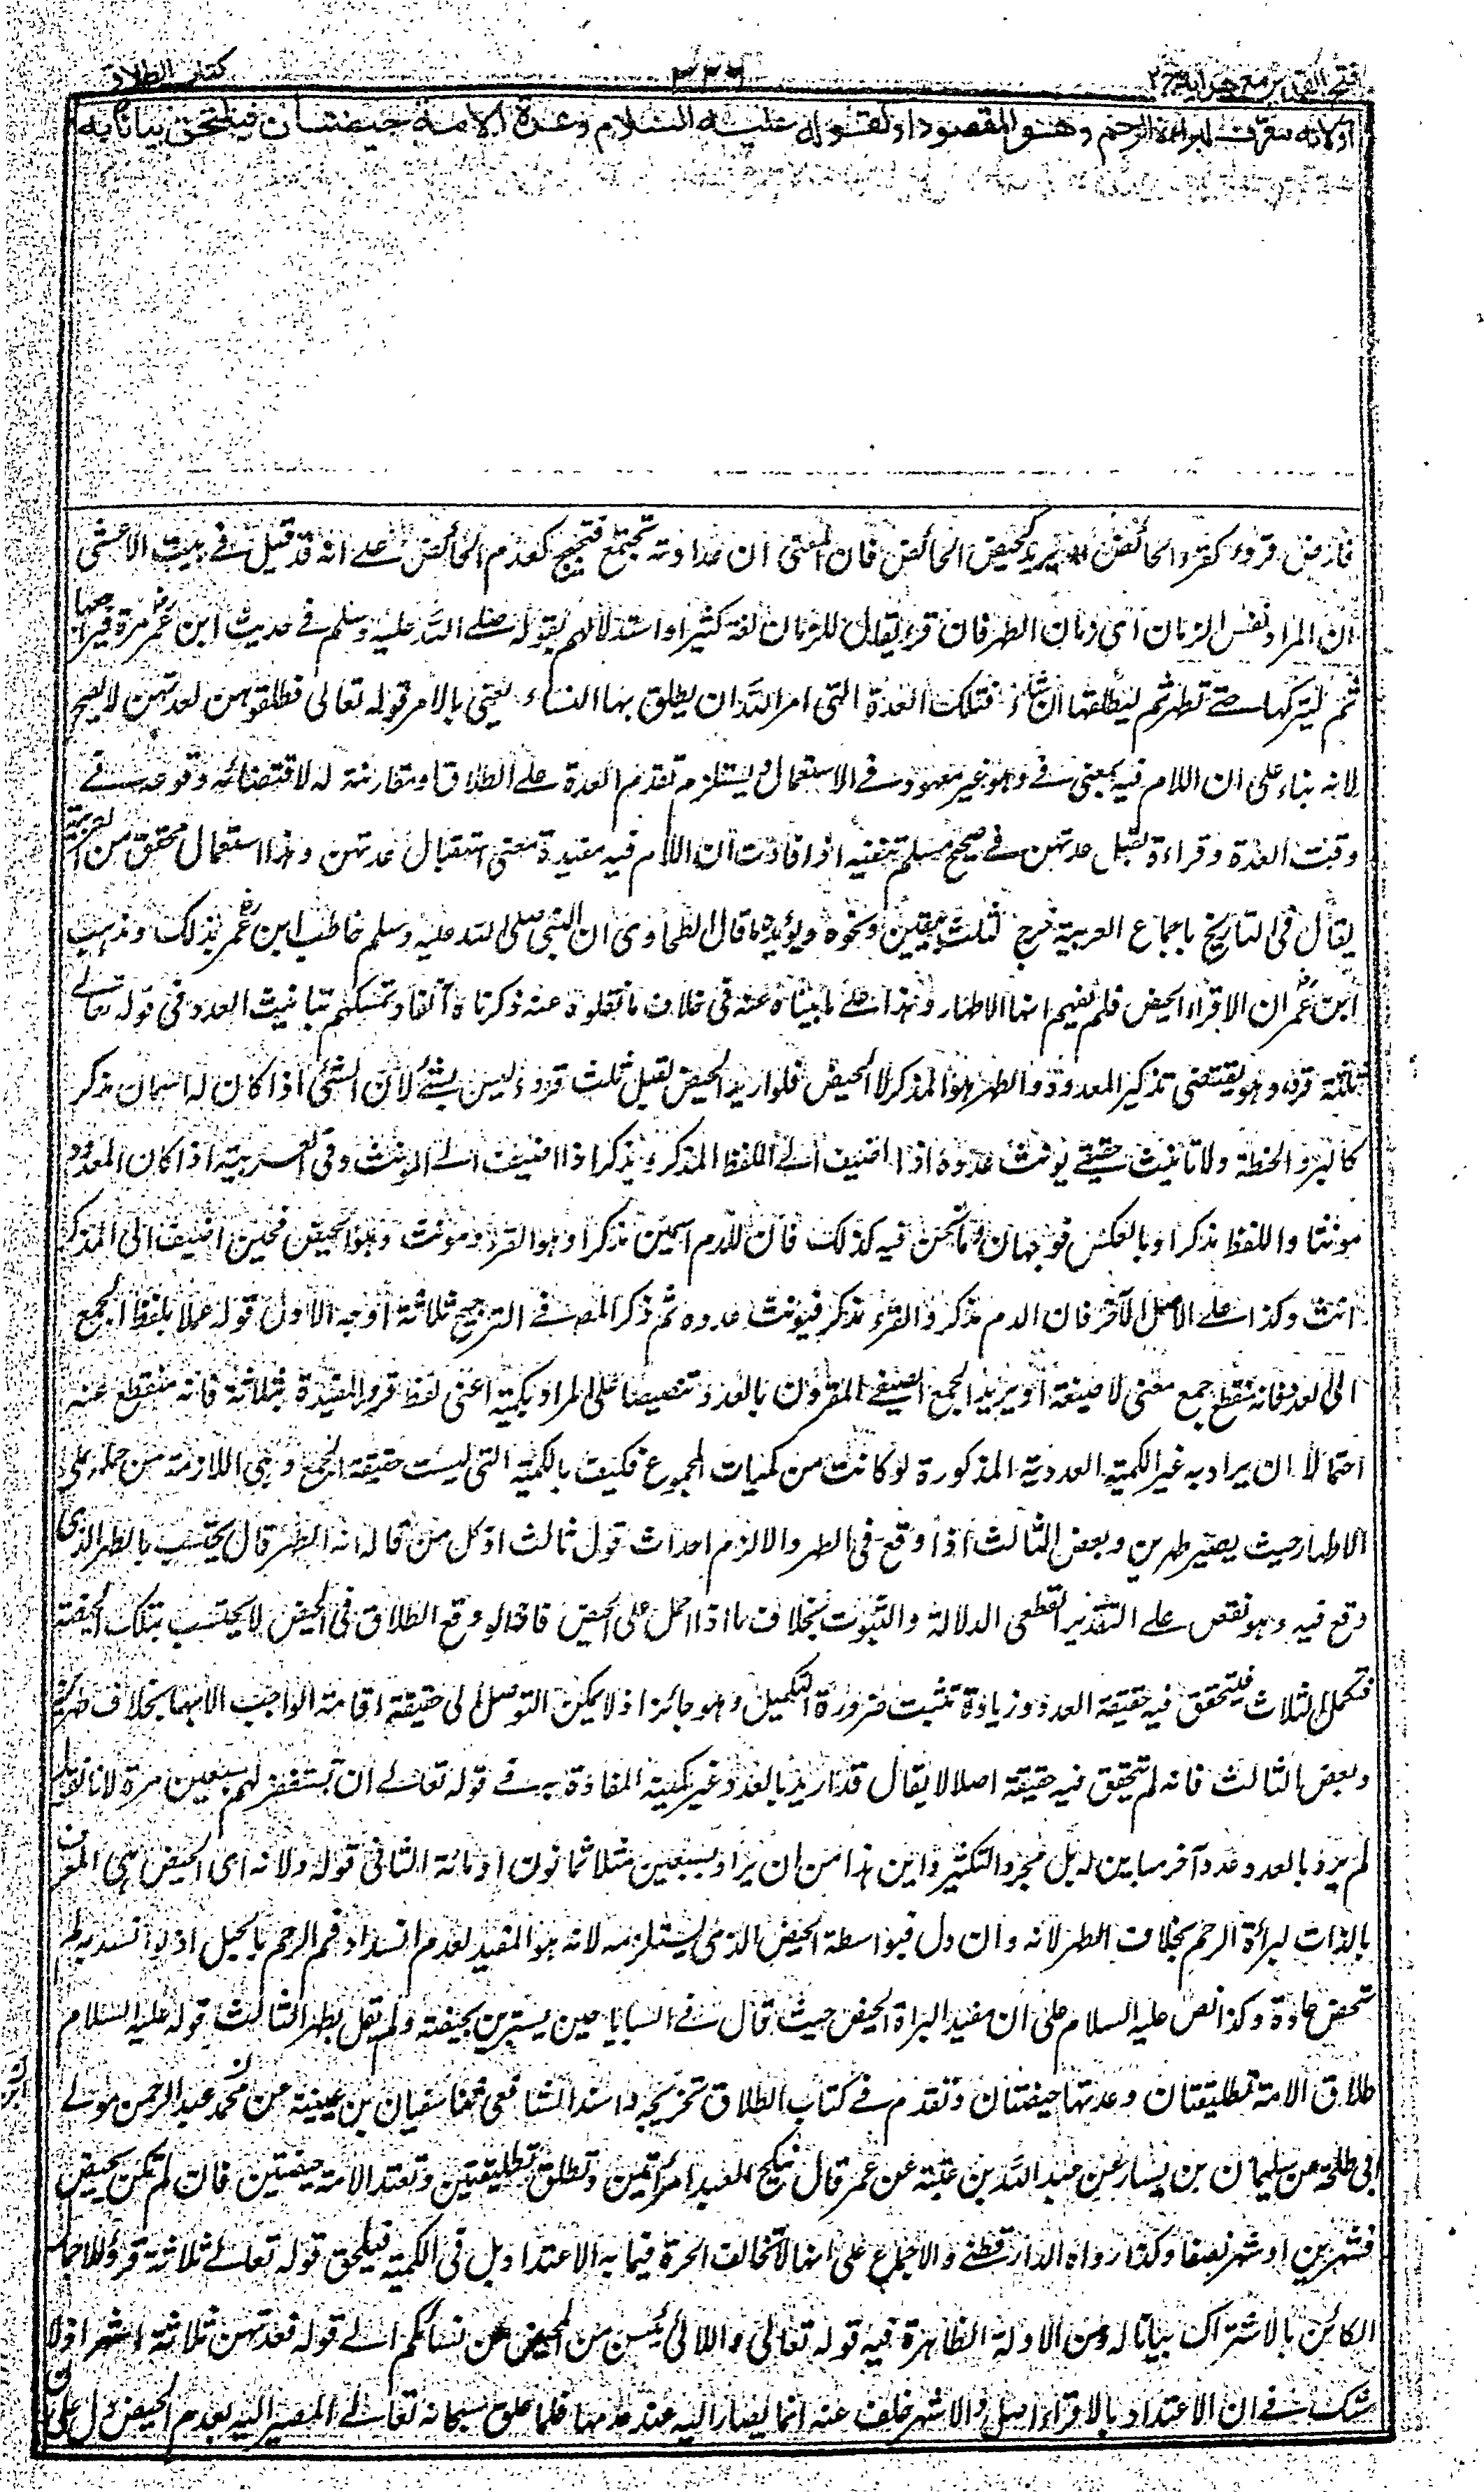 فتح القدير مع هداية ج٢
٣٣٦
كتاب الطلاق
اولانه معرف لبراءة الرحم وهو المقصود اولقوله عليه السلام وعدة الامة حيضتان فيلتحق بيانا به
فارض قروء كقروء الحائض يريد كحيض الحائض فان المعنى ان عداوته تجتمع فتهيج كعدم الحائض على انه قد قيل في بيت الاعشى
ان المراد نفس الزمان اى زمان الطهر فان قرء يقال للزمان لغة كثيرا واستدلالهم بقوله صلى الله عليه وسلم في حديث ابن عمر مره فليراجعها
ثم ليتركها حتى تطهر ثم ليطلقها ان شاء فتلك العدة التى امر الله ان يطلق بها النساء يعنى بالامر قوله تعالى فطلقوهن لعدتهن لا يصح
لانه بناء على ان اللام فيه بمعنى في وهو غير معهود في الاستعمال ويستلزم تقدم العدة على الطلاق او مقارنته له لاقتضائه وقوعه في
وقت العدة وقراءة لقبل عدتهن في صحيح مسلم تنفيه اذ افادت ان اللام فيه مفيدة معنى استقبال عدتهن وهذا استعمال محقق من العربية
يقال في التاريخ باجماع العربية خرج لثلث بقين ونحوه ويؤيده ما قال الطحاوى ان النبى صلى الله عليه وسلم خاطب ابن عمر بذلك ومذهب
ابن عمر ان الاقراء الحيض فلم يفهم انها الاطهار وهذا على ما بيناه عنه في خلاف ما نقلوه عنه ذكرناه آنفا وتمسكهم بتانيث العدد في قوله تعالى
ثلثة قروء وهو يقتضى تذكير المعدود والطهر هو المذكر لا الحيض فلو اريد الحيض لقيل ثلث قروء ليس بشئ لان الشئ اذا كان له اسمان مذكر
كالبر والحنطة ولا تانيث حقيقى يونث عدده اذا اضيف الى اللفظ المذكر ويذكر اذا اضيف الى المونث وفى العربية اذا كان المعدود
مونثا واللفظ مذكرا او بالعكس فوجهان وما نحن فيه كذلك فان للدم اسمين مذكرا وهو القرء ومونث وهو الحيض فحين اضيف الى المذكر
انث وكذا على الاصل الآخر فان الدم مذكر والقرء مذكر فيونث عدده ثم ذكر المص في الترجيح ثلاثة اوجه الاول قوله عملا بلفظ الجمع
الى العدد فانه فقط جمع معنى لا صيغة او يريد الجمع الصيغى المقرون بالعدد تنصيصا على المراد بكمية اعنى لفظ قروء المقيدة بثلاثة فانه منقطع عنه
احتمالا ان يراد به غير الكمية العددية المذكورة لو كانت من كميات المجموع فكيف بالكمية التى ليست حقيقة الجمع وهى اللازمة من حمله على
الاطهار حيث يصير طهرين وبعض الثالث اذا وقع في الطهر والا لزم احداث قول ثالث اذ كل من قال انه الطهر قال يحتسب بالطهر الذى
وقع فيه وهو نقص على التقدير القطعى الدلالة والثبوت بخلاف ما اذا حمل على الحيض فانه لو وقع الطلاق في الحيض لا يحتسب بتلك الحيضة
فتكمل الثلاث فيتحقق فيه حقيقة العدد وزيادة تثبت ضرورة التكميل وهو جائز اذ لا يمكن التوصل الى حقيقة اقامة الواجب الا بها بخلاف طهرين
وبعض الثالث فانه لم يتحقق فيه حقيقة اصلا لا يقال قد اريد بالعدد غير كمية المفادة به في قوله تعالى ان تستغفر لهم سبعين مرة لانا نقول
لم يرد بالعدد عدد آخر مباين له بل مجرد التكثير واين هذا من ان يراد بسبعين مثلا ثمانون او مائة الثانى قوله ولانه اى الحيض هى المعرف
بالذات لبراءة الرحم بخلاف الطهر لانه وان دل فبواسطة الحيض الذى يستلزمه لانه هو المفيد لعدم انسداد فم الرحم بالحبل اذ لو انسد به لم
تحض عادة وكذا نص عليه السلام على ان مفيد البراءة الحيض حيث قال في السبايا حين يستبرين بحيضة ولم يقل بطهر الثالث قوله عليه السلام
طلاق الامة تطليقتان وعدتها حيضتان وتقدم في كتاب الطلاق تخريجه واسند الشافعى ثنا سفيان بن عيينة عن محمد بن عبد الرحمن مولى
ابى طلحة عن سليمان بن يسار عن عبد الله بن عتبة عن عمر قال ينكح العبد امرأتين ويطلق تطليقتين وتعتد الامة حيضتين فان لم تكن تحيض
فشهرين او شهرا ونصفا وكذا رواه الدارقطنى والاجماع على انها لا تخالف الحرة فيما به الاعتداد بل في الكمية فيلحق قوله تعالى ثلاثة قروء للاجمال
الكائن بالاشتراك بيانا له ومن الادلة الظاهرة فيه قوله تعالى واللائى يئسن من المحيض من نسائكم الى قوله فعدتهن ثلاثة اشهر اذ لا
شك في ان الاعتداد بالاقراء اصل والاشهر خلف عنه انما يصار اليه عند عدمها فلما علق سبحانه تعالى المصير اليه بعدم الحيض دل على ان